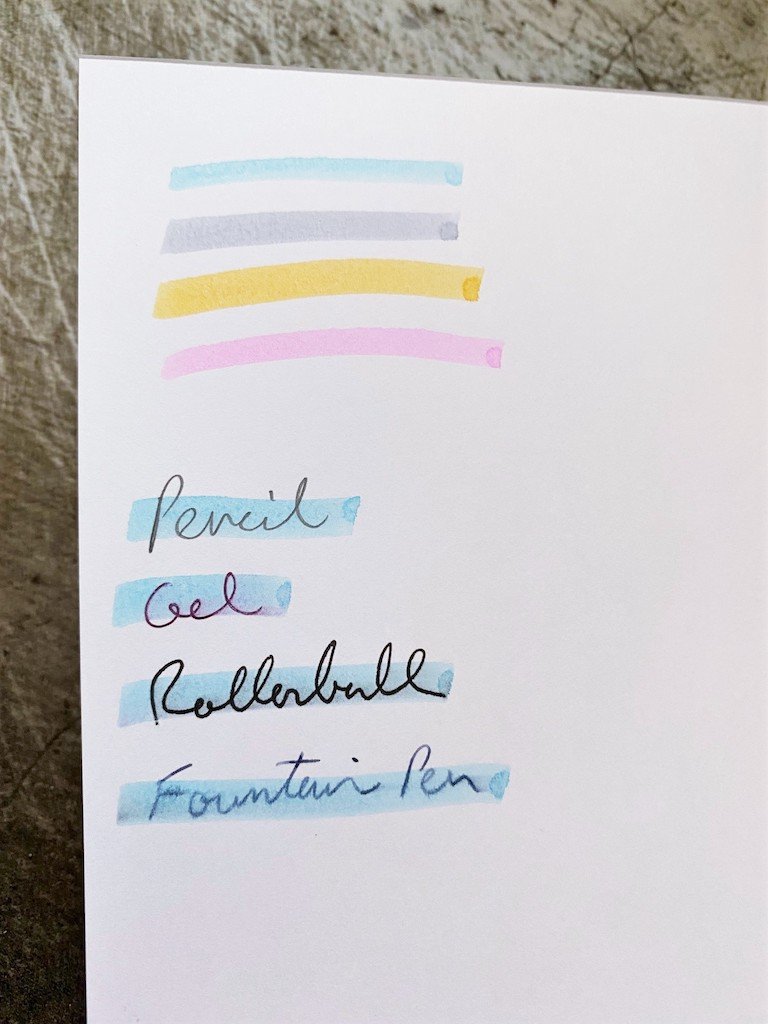 Pencil
Gel
Rollerball
Fountain Pen